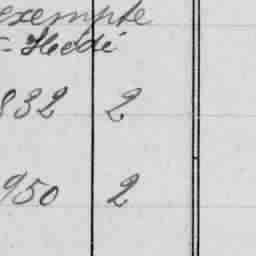 exempte
- Hedi
832 2
950 2